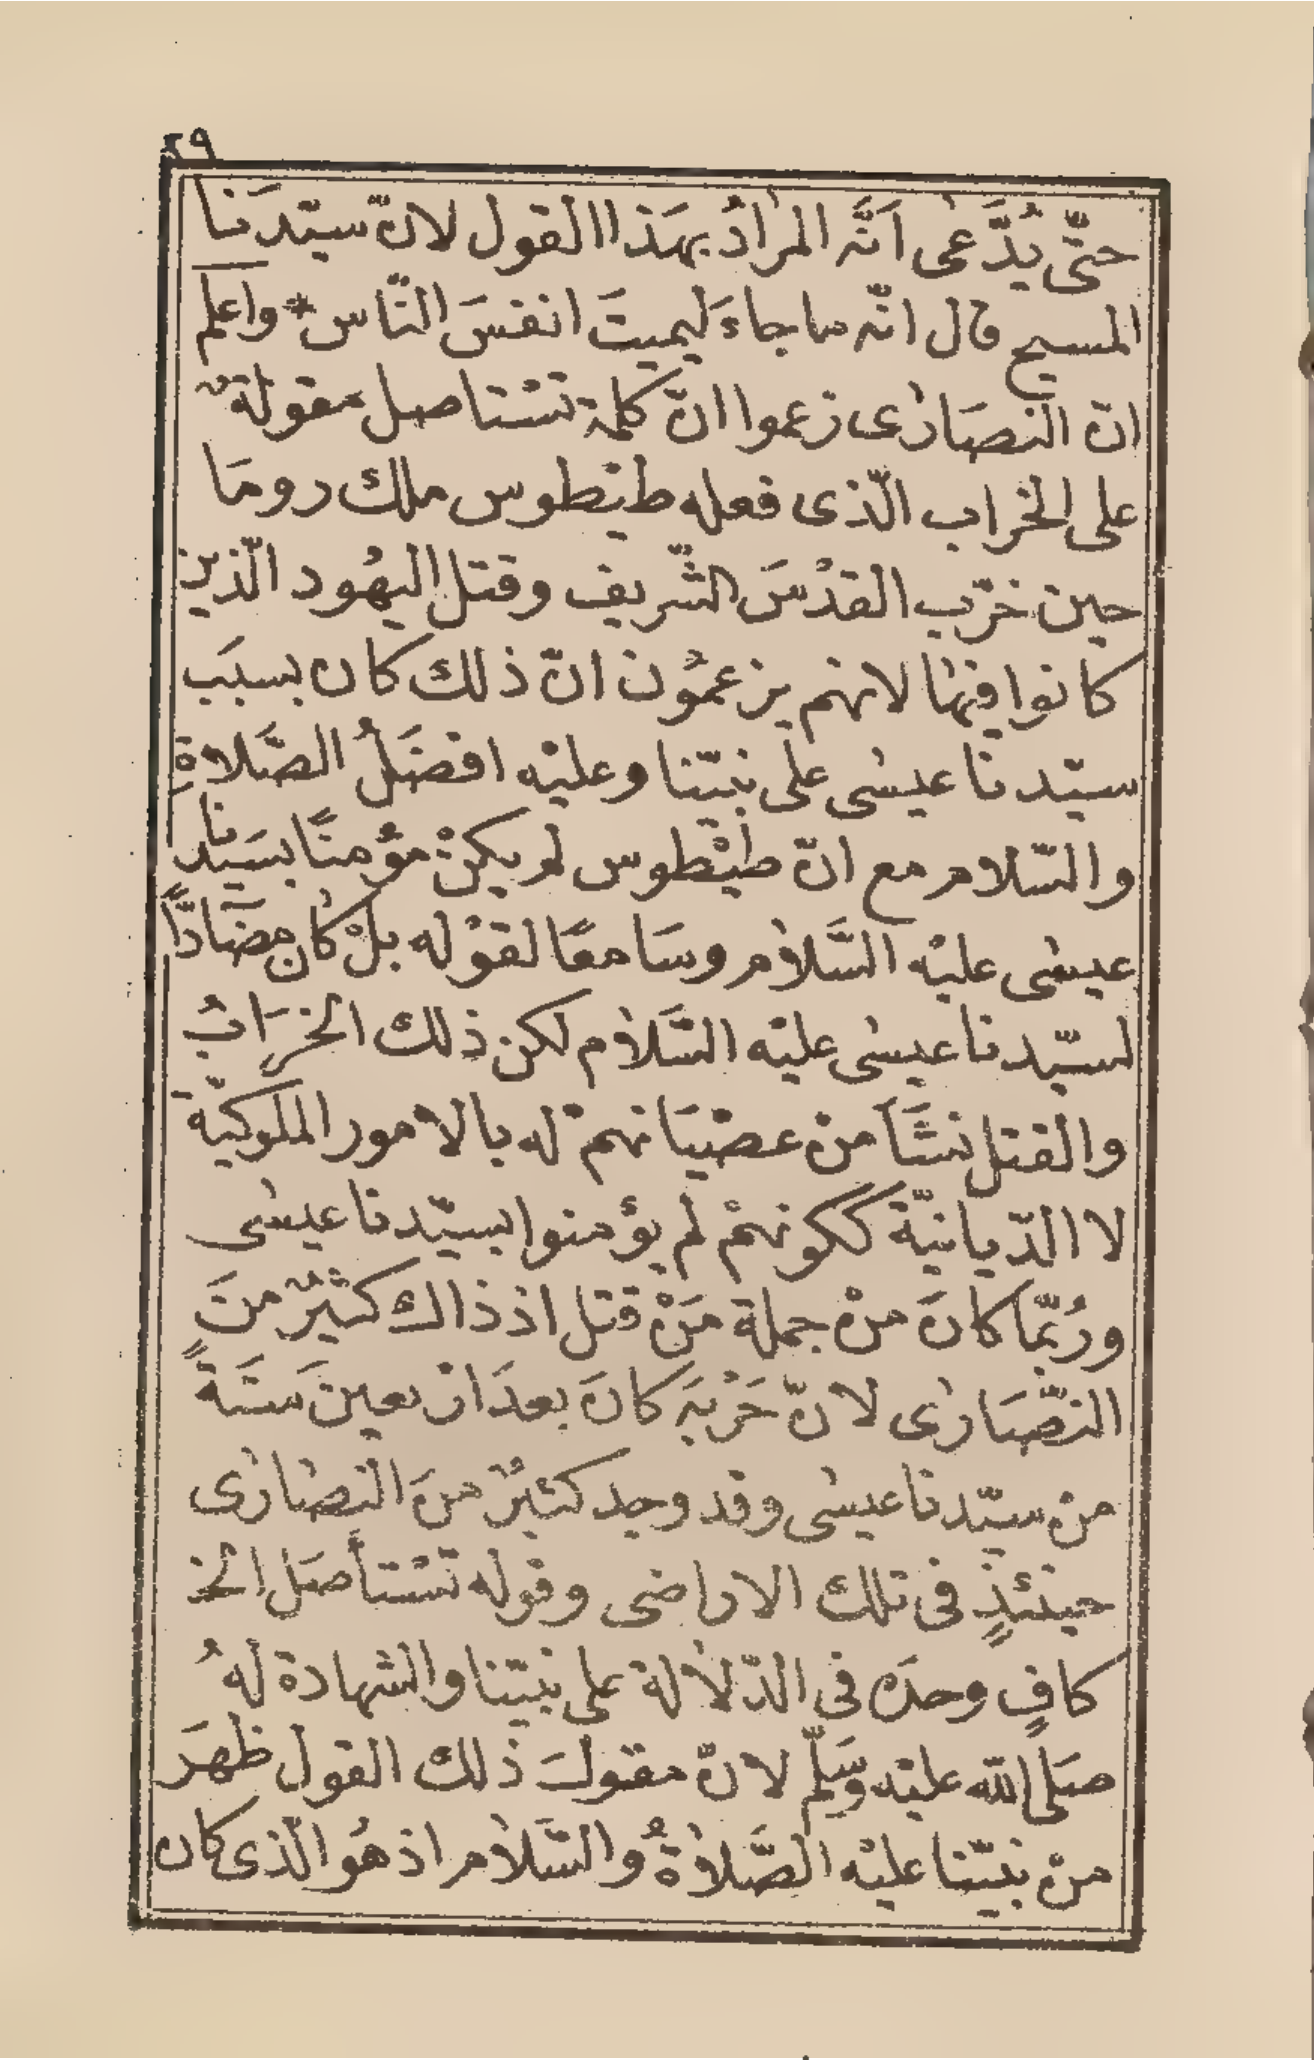 ٢٩
حتّى يُدَّعى اَنَّه المرادُ بهَذا القول لانّ سيّدَنا
المسيح قال انّه ما جاءَ لِيميتَ انفسَ النّاس * واعلم
انّ النصَارٰى زعموا انّ كلمة تسْتاصل مقولةٌ
على الخراب الّذى فعله طيْطوس ملك رومَا
حين خرّب القدْسَ الشّريف وقتل اليهُود الّذين
كانوا فيهٰا لانهم يزعمُون انّ ذلك كان بسبَب
سيّدنا عيسٰى على نبيّنا وعليْه افضَلُ الصَّلاةِ
والسّلام مع انّ طيْطوس لم يكنْ مؤمنًا بسَيّدنا
عيسٰى عليْه السَّلاٰم وسَامعًا لقوْله بلْ كٰان مضَادًّا
لسيّدنا عيسٰى عليْه السَّلاٰم لكن ذلك الخرَابُ
والقتل نشَأَ منْ عصْيَانهمْ له بالامور الملوكيّة
لا الدّيانيّة ككونهمْ لم يؤمنوا بسيّدنا عيسٰى
ورُبّمَا كانَ منْ جملة مَنْ قتل اذ ذاك كثيرٌ منَ
النّصَارٰى لانّ حَرْبَه كانَ بعدَ اربعينَ سَنَةً
منْ سيّدنا عيسٰى وقد وجد كثيرٌ منَ النصٰارٰى
حينئذٍ فى تلك الاراضى وقوله تسْتأصَل الخ
كافٍ وحدَه فى الدّلاٰلة على نبيّنا والشهادة لهُ
صَلى الله عليْه وسَلّم لانّ مقولَ ذلك القول ظهَرَ
منْ نبيّنا عليْه الصَّلاٰةُ والسَّلاٰم اذ هُو الّذى كان